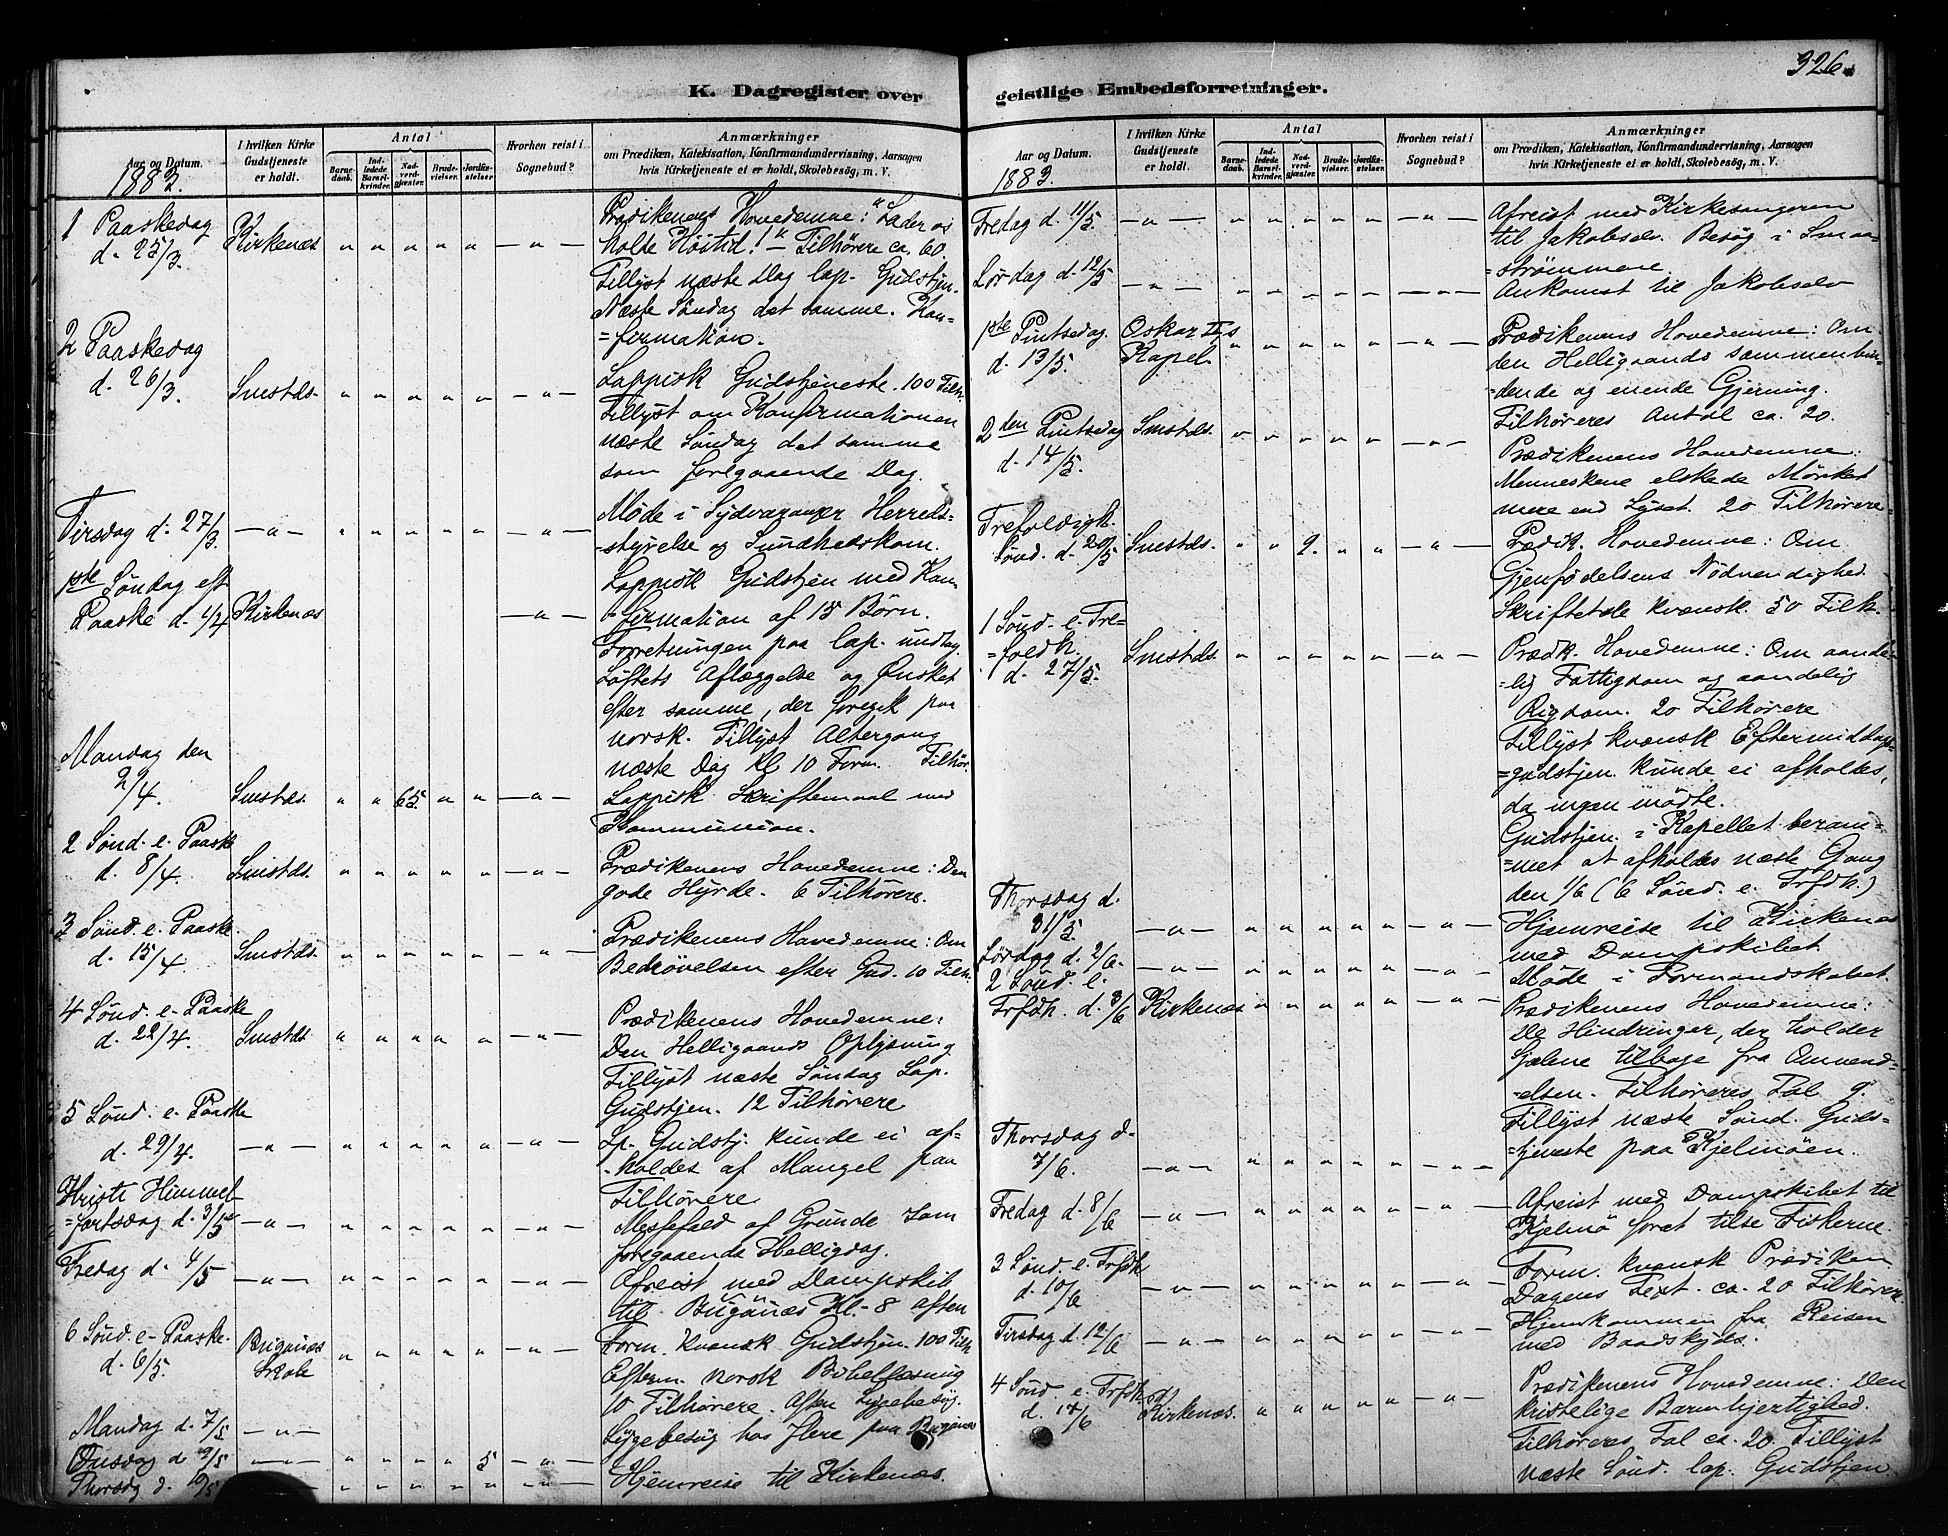 326.
K. Dagregister over
Aar og Datum.
I hvilken Kirke Gudstjeneste er holdt.
Antal
Barnedaab.
Indledede Barselkvinder.
Nadverdgjæster.
Brudevielser.
Jordfæstelser
Hvorhen reist i Sognebud?
Anmærkninger
om Prædiken, Katekisation, Konfirmandundervisning, Aarsagen
hvis Kirketjeneste ei er holdt, Skolebesøg, m. V.
1883.
1 Paaskedag
d. 25/3.
Kirkenæs
Prædikenens Hovedemne: "Lader os
holde Høitid!" – Tilhørere ca. 60.
Tillyst næste Dag lap. Gudstjen.
Næste Søndag det samme. Kon-
=firmation.
2 Paaskedag
d. 26/3.
Smstds.
Lappisk Gudstjeneste. 100 Tilh.
Tillyst om Konfirmationen
næste Søndag det samme
som foregaaende Dag.
Tirsdag d. 27/3.
Møde i Sydvaranger Herreds-
=styrelse og Sundhedskom.
1ste Søndag eft.
Paaske d. 1/4
Kirkenæs
Lappisk Gudstjen med Kon-
=firmation af 15 Børn.
Forretningen paa lap. undtag.
Løftets Aflæggelse og Ønsket
efter samme, der foregik paa
norsk. Tillyst Altergang
næste Dag Kl 10 Form. Tilhør.
Mandag den
2/4.
Smstds.
65
Lappisk Skriftemaal med
Kommunion.
2 Sønd. e. Paaske
d. 8/4.
Smstds.
Prædikenens Hovedemne: Den
gode Hyrde. 6 Tilhørere.
3 Sønd. e. Paaske.
d. 15/4
Smstds.
Prædikenens Hovedemne: Om
Bedrøvelsen efter Gud. 10 Tilh.
4 Sønd. e. Paaske
d. 22/4.
Smstds
Prædikenens Hovedemne:
Den Helligaands Oplysning
Tillyst næste Søndag Lap.
Gudstjen. 12 Tilhørere
5 Sønd. e. Paaske
d. 29/4.
Lp. Gudstj. kunde ei af-
=holdes af Mangel paa
Tilhørere
Kristi Himmel-
=fartsdag d. 3/5
Messefald af Grunde som
foregaaende Helligdag.
Fredag d. 4/5
Afreist med Dampskib
til Bugønæs Kl. 8 aften
6 Sønd. e. Paaske.
d. 6/5.
Bugønæs
Skole
Form. kvænsk Gudstjen. 100 Tilh
Efterm. norsk Bibellæsning
10 Tilhørere. Aften Sygebesøg.
Mandag d. 7/5
Sygebesøg hos flere paa Bugønæs
Onsdag d 9/5
5
Thorsdg d. 10/5
Hjemreise til Kirkenæs.
geistlige Embedsforretninger.
Aar og Datum.
I hvilken Kirke Gudstjeneste er holdt.
Antal
Barnedaab.
Indledede Barselkvinder.
Nadverdgjæster.
Brudevielser.
Jordfæstelser
Hvorhen reist i Sognebud?
Anmærkninger
om Prædiken, Katekisation, Konfirmandundervisning, Aarsagen
hvis Kirketjeneste ei er holdt, Skolebesøg, m. V.
1883.
Fredag d. 11/5.
Afreist med Kirkesangeren
til Jakobselv. Besøg i Smaa-
=strømmene
Lørdag d. 12/5
Ankomst til Jakobselv
1ste Pintsedag.
d. 13/5.
Oskar IIs
Kapel
Prædikenens Hovedemne: Om
den Helligaands sammenbin-
=dende og enende Gjerning.
Tilhøreres Antal ca. 20.
2den Pintsedag
d. 14/5.
Smstds.
Prædikenens Hovedemne:
Menneskene elskede Mørket
mere end Lyset. 20 Tilhørere
Trefoldigh.
Sønd. d. 20/5
Smstds.
9.
Prædik. Hovedemne: Om
Gjenfødelsens Nødvendighed.
Skriftetale kvænsk. 50 Tilh.
1 Sønd. e. Tre-
=foldh.
d. 27/5.
Smstds.
Prædk. Hovedemne: Om aande-
=lig Fattigdom og aandelig
Rigdom. 20 Tilhørere
Tillyst kvænsk Eftermiddags-
=gudstjen. kunde ei afholdes,
da ingen mødte.
Gudstjen. i Kapellet beram-
=met at afholdes næste Gang
den 1/6 (6 Sønd. e. Trfdh.)
Thorsdag d.
31/5.
Hjemreise til Kirkenæs
med Dampskibet
Lørdag d. 2/6.
Møde i Formandskabet.
2 Sønd. e.
Trfdh. d. 3/6
Kirkenæs
Prædikenens Hovedemne:
De Hindringer, der holder
Sjælene tilbage fra Omvend-
=elsen. Tilhøreres Tal 9.
Tillyst næste Sønd. Guds-
=tjeneste paa Kjelmøen.
Thorsdag d.
7/6.
Fredag d. 8/6
Afreist med Dampskibet til
Kjelmø forat tilse Fiskerne.
3 Sønd. e. Trfdh
d. 10/6
Form. kvænsk Prædiken
Dagens Text. ca. 20 Tilhørere
Tirsdag d. 12/6
Hjemkommen fra Reisen
med Baadskyds.
4 Sønd e. Trfdh.
d. 17/6
Kirkenæs.
Prædikenens Hovedemne: Den
kristelige Barmhjertighed.
Tilhøreres Tal ca. 20. Tillyst
næste Sønd. lap. Gudstjen.